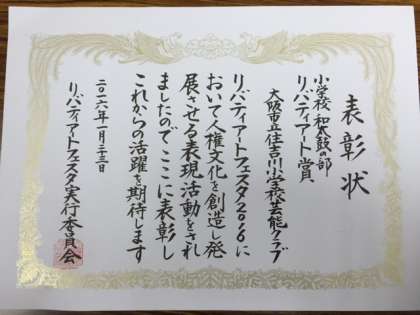 表彰状
小学校 和太鼓の部
リバティアート賞
大阪市立住吉川小学校芸能クラブ
リバティアートフェスタ2016に
おいて人権文化を創造し発
展させる表現活動をされ
ましたのでここに表彰し
これからの活躍を期待します
二〇一六年一月二十三日
リバティアートフェスタ実行委員会